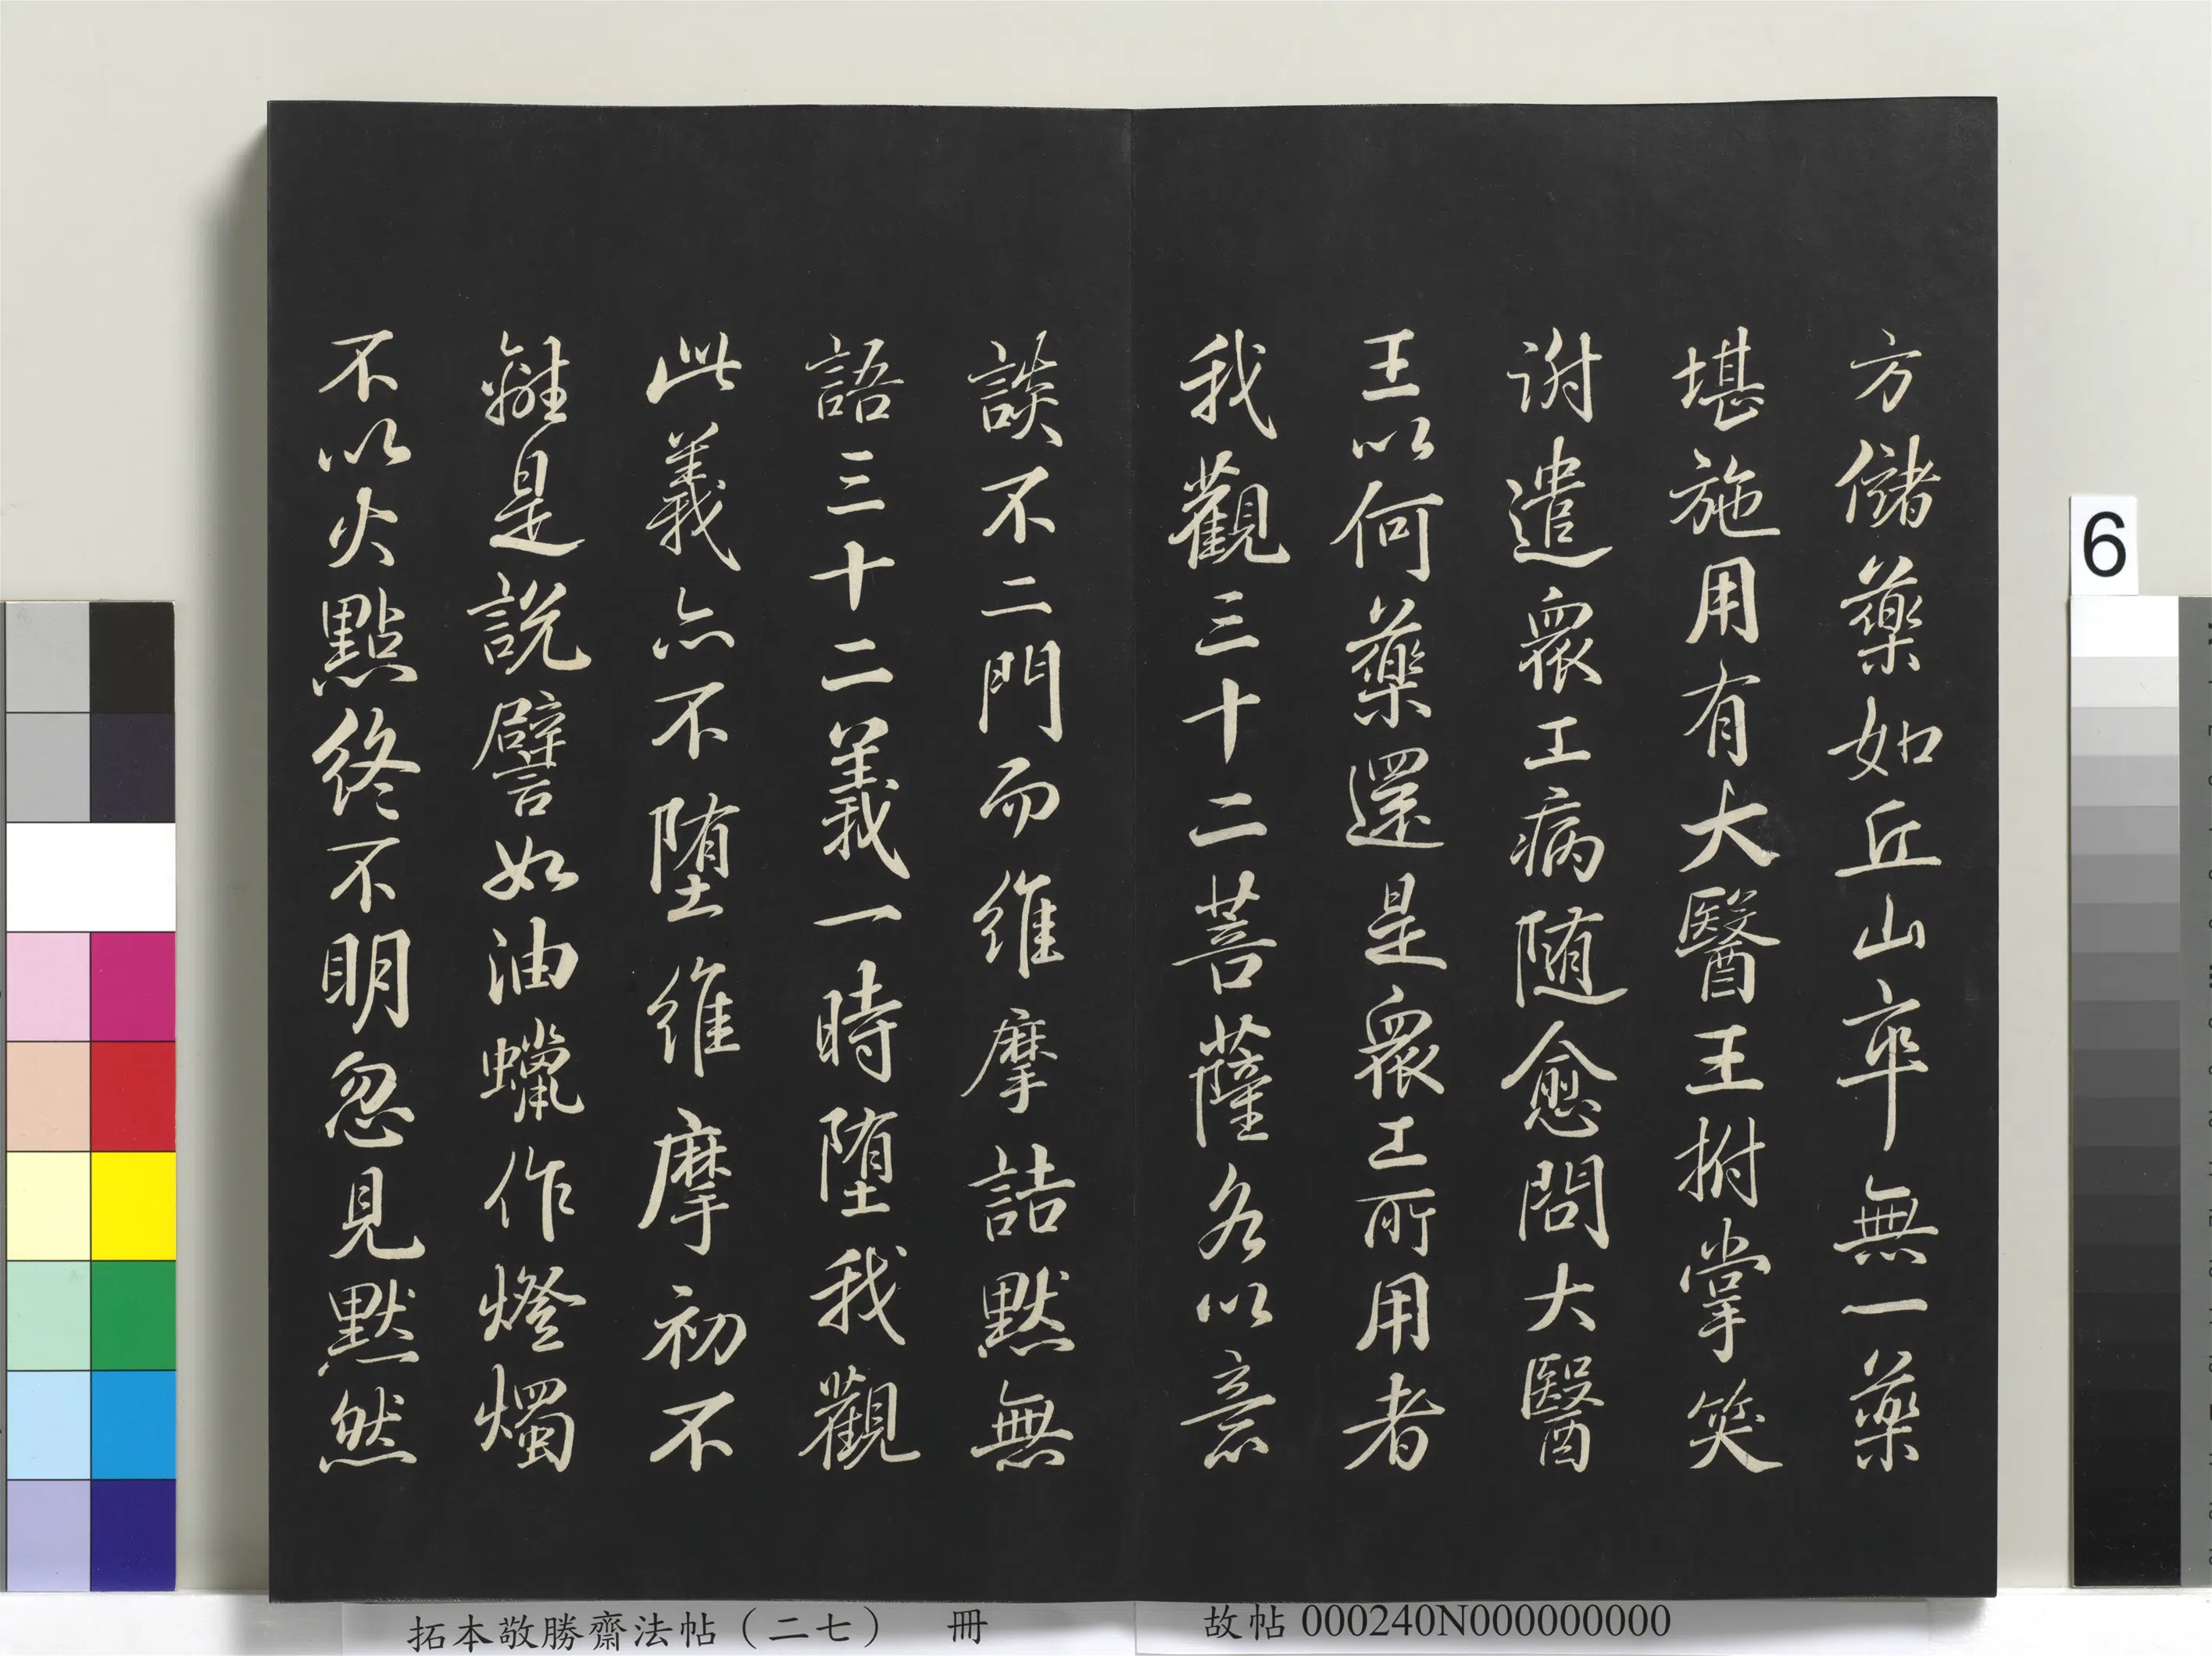 方儲藥如丘山卒無一藥
堪施用有大醫王拊掌笑
謝遣眾工病随愈問大醫
王以何藥還是眾工所用者
我觀三十二菩薩各以意
談不二門而維摩詰默無
語三十二義一時墮我觀
此義亦不墮維摩初不
離是說譬如油蠟作燈燭
不以火點終不明忽見默然
拓本敬勝齋法帖（二七） 冊
故帖 000240N000000000
6